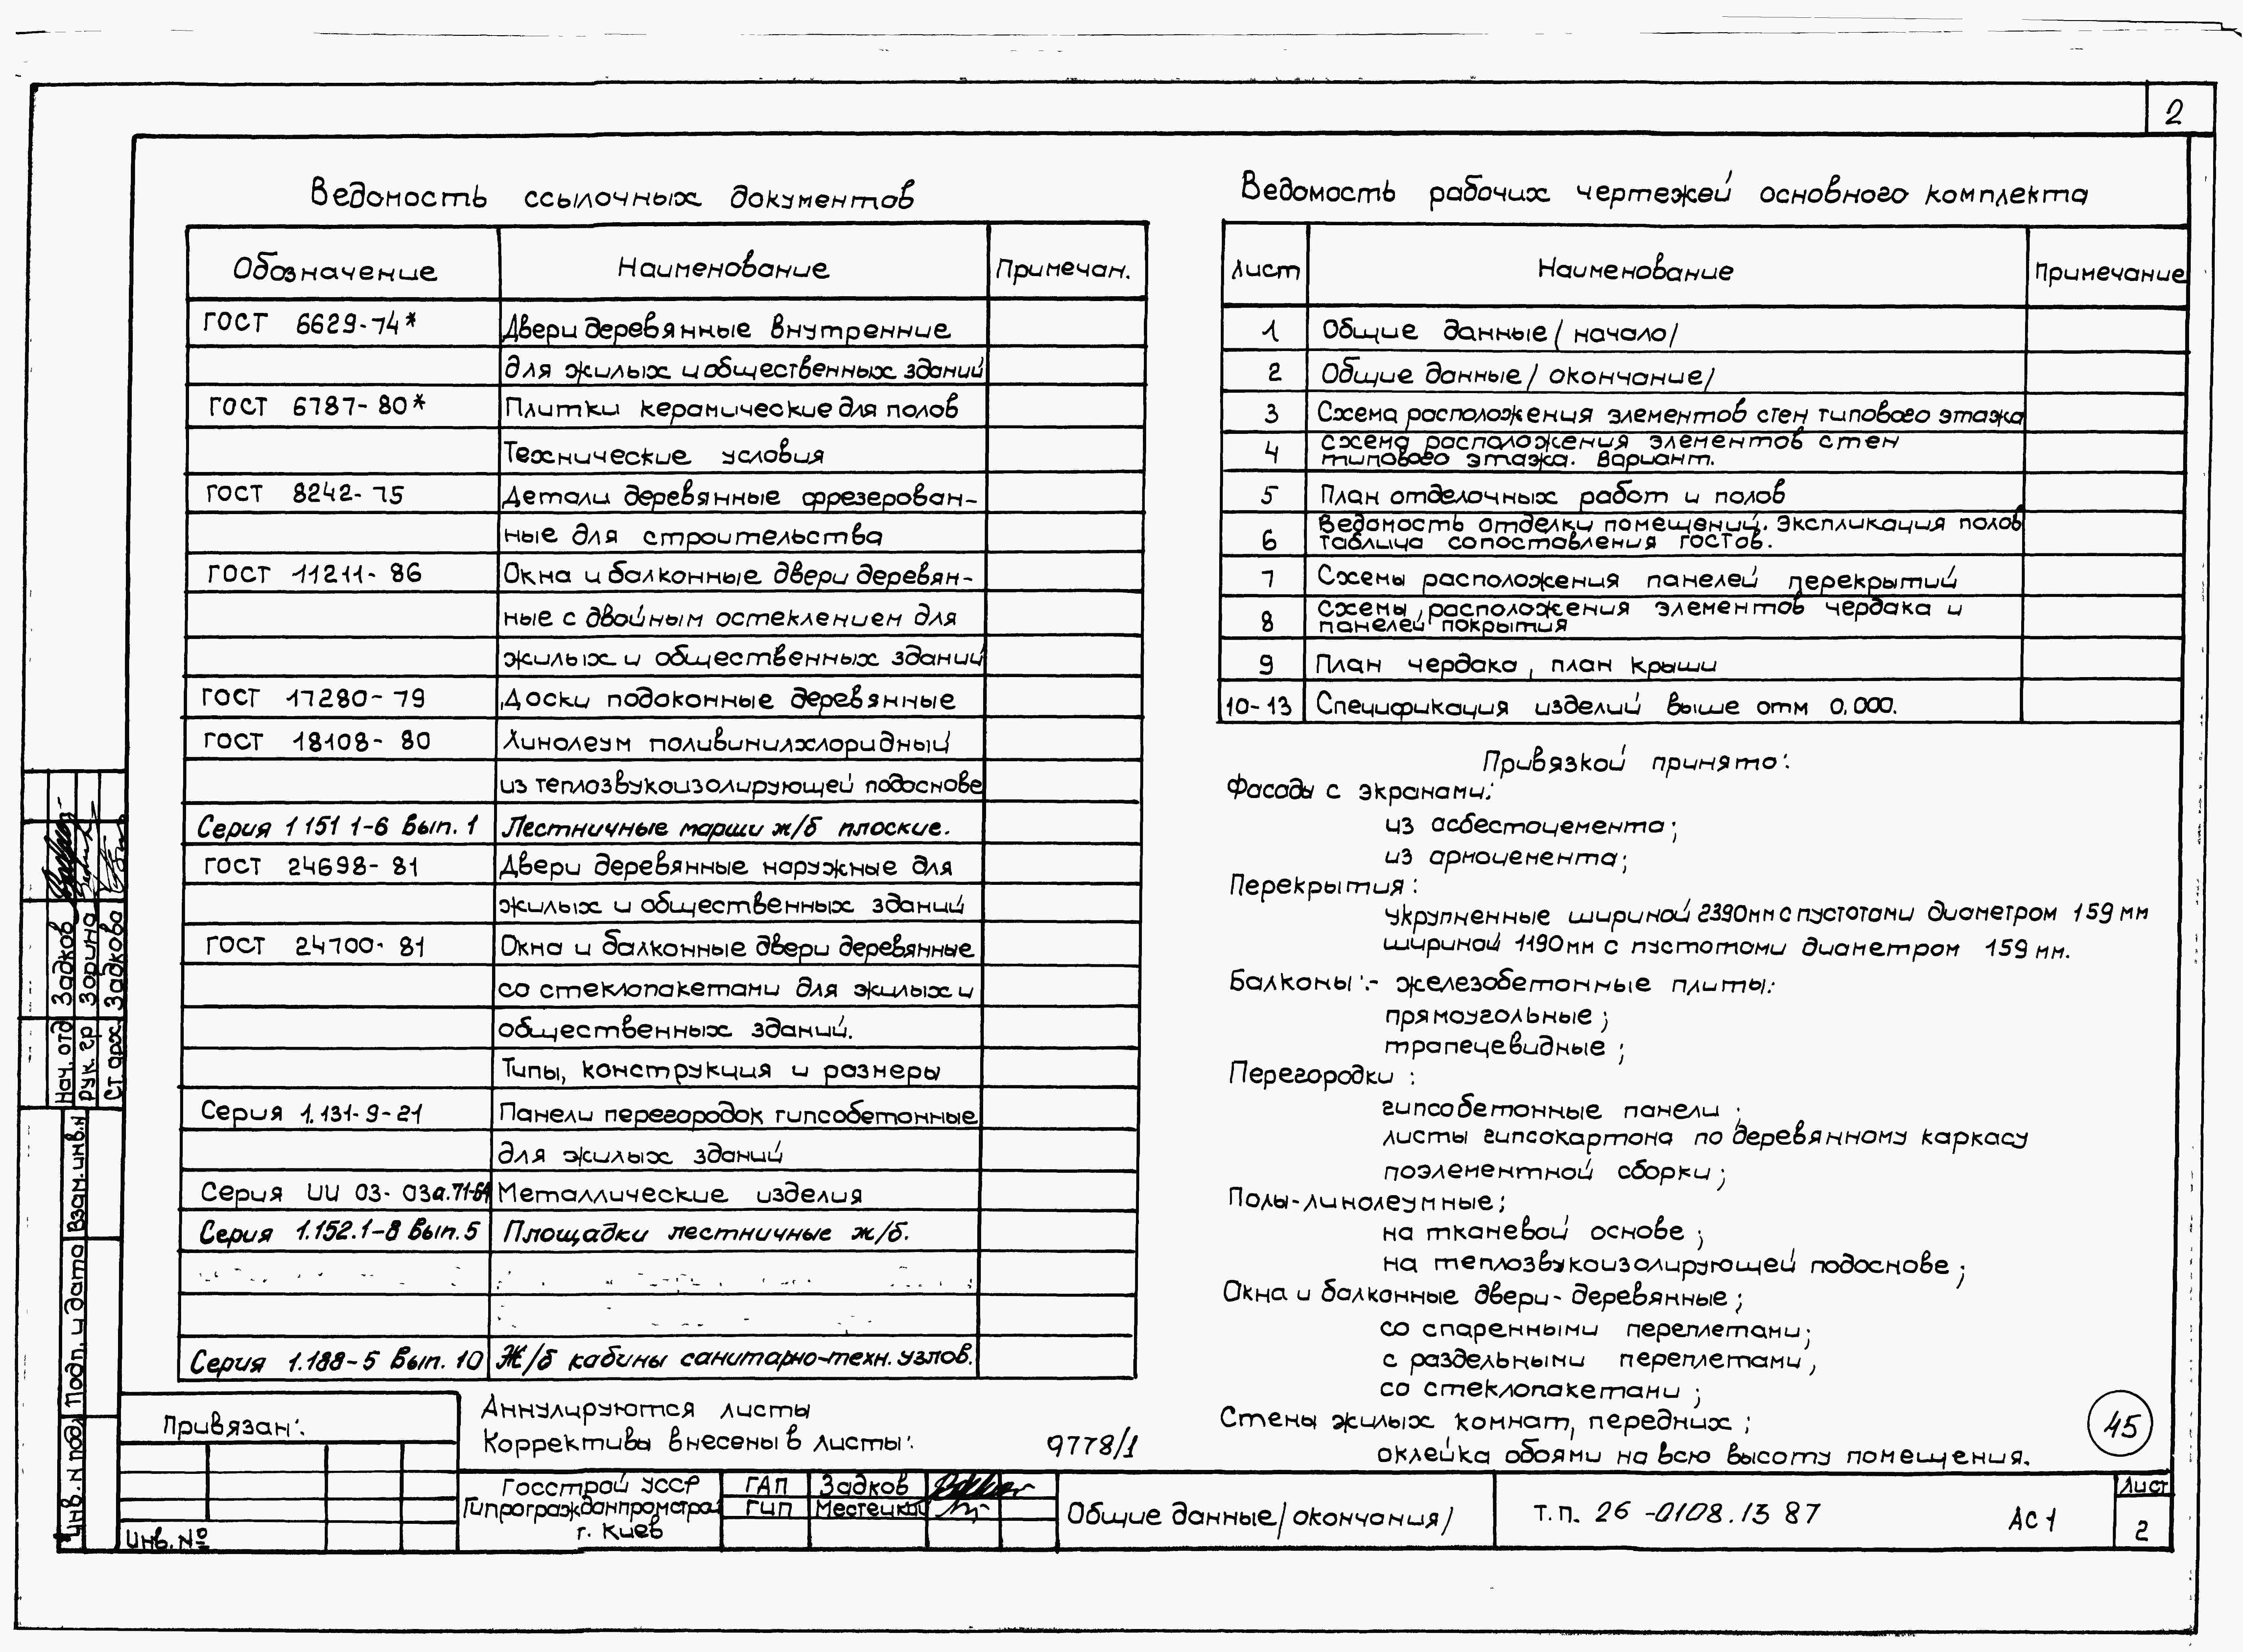 2
Ведомость ссылочных документов
Обозначение Наименование Примечан.
ГОСТ 6629-74* Двери деревянные внутренние
для жилых и общественных зданий
ГОСТ 6787-80* Плитки керамические для полов
Технические условия
ГОСТ 8242-75 Детали деревянные фрезерован-
ные для строительства
ГОСТ 11211-86 Окна и балконные двери деревян-
ные с двойным остеклением для
жилых и общественных зданий
ГОСТ 17280-79 Доски подоконные деревянные
ГОСТ 18108-80 Линолеум поливинилхлоридный
из теплозвукоизолирующей подоснове
Серия 1 151 1-6 Вып. 1 Лестничные марши ж/б плоские.
ГОСТ 24698-81 Двери деревянные наружные для
жилых и общественных зданий
ГОСТ 24700-81 Окна и балконные двери деревянные
со стеклопакетами для жилых и
общественных зданий.
Типы, конструкция и размеры
Серия 1.131-9-21 Панели перегородок гипсобетонные
для жилых зданий
Серия ИИ 03-03а.71-64 Металлические изделия
Серия 1.152.1-8 Вып. 5 Площадки лестничные ж/б.
Серия 1.188-5 Вып. 10 Ж/б кабины санитарно-техн. узлов.
Ведомость рабочих чертежей основного комплекта
Лист Наименование Примечание
1 Общие данные /начало/
2 Общие данные /окончание/
3 Схема расположения элементов стен типового этажа
4 Схема расположения элементов стен
типового этажа. Вариант.
5 План отделочных работ и полов
6 Ведомость отделки помещений. Экспликация полов
таблица сопоставления гостов.
7 Схемы расположения панелей перекрытий
8 Схемы расположения элементов чердака и
панелей покрытия
9 План чердака, план крыши
10-13 Спецификация изделий выше отм 0,000.
Привязкой принято:
Фасады с экранами:
из асбестоцемента;
из армоцемента;
Перекрытия:
укрупненные шириной 2390мм с пустотами диаметром 159 мм
шириной 1190мм с пустотами диаметром 159 мм.
Балконы:- железобетонные плиты:
прямоугольные;
трапецевидные;
Перегородки:
гипсобетонные панели;
листы гипсокартона по деревянному каркасу
поэлементной сборки;
Полы-линолеумные;
на тканевой основе;
на теплозвукоизолирующей подоснове;
Окна и балконные двери-деревянные;
со спаренными переплетами;
с раздельными переплетами,
со стеклопакетами;
Стены жилых комнат, передних;
оклейка обоями на всю высоту помещения.
45
Нач. отд Задков
Рук. гр Зорина
Ст. арх. Задкова
Взам. инв. н
Подп. и дата
Инв. N подл
Привязан:
Инв. №
Аннулируются листы
Коррективы внесены в листы:
9778/1
Госстрой УССР
Гипрогражданпромстрой
г. Киев
ГАП Задков
ГИП Местецкий
Общие данные /окончания/
Т.п. 26-0108.13 87 АС 1
Лист
2